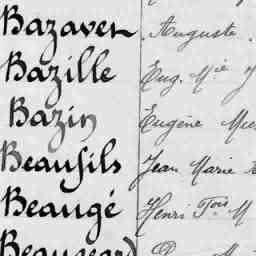 Bazaver Auguste.
Bazille Eug. Mie J
Bazin Eugène
Beaufils Jean Marie
Beaugé Henri Fois M
Beauregard